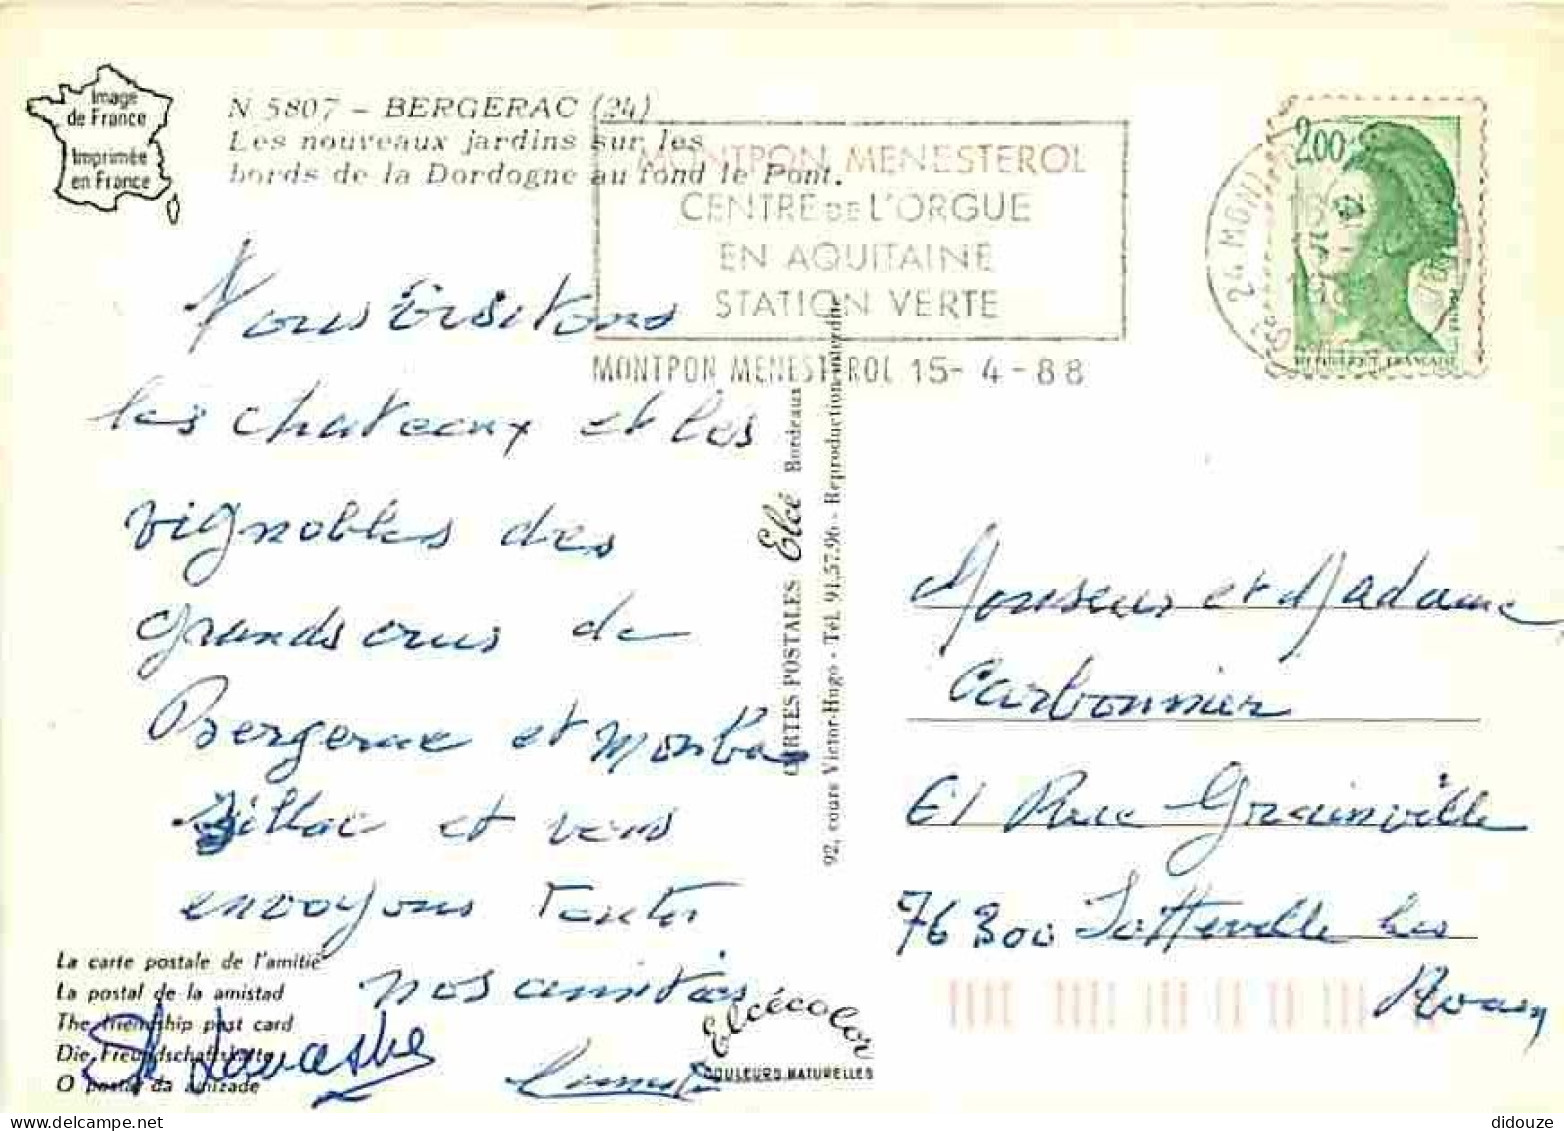 Image
de France
Imprimée
en France
N 5807 - BERGERAC (24)
Les nouveaux jardins sur les
bords de la Dordogne au fond le Pont.
MONTPON MENESTEROL
CENTRE DE L'ORGUE
EN AQUITAINE
STATION VERTE
MONTPON MENESTEROL 15-4-88
2.00
24 MONT
REPUBLIQUE FRANÇAISE
Nous visitons
les chateaux et les
vignobles des
grands crus de
Bergerac et Monba
zillac et vous
envoyons toutes
nos amitiés
La carte postale de l'amitié
La postal de la amistad
The friendship post card
Die Freundschaftskarte
O postal da amizade
Elcécolor
COULEURS NATURELLES
CARTES POSTALES Elcé Bordeaux
92, cours Victor-Hugo - Tél. 91.57.96 - Reproduction interdite
Monsieur et Madame
Carbonnier
61 Rue Grainville
76300 Sotteville les
Rouen
didouze